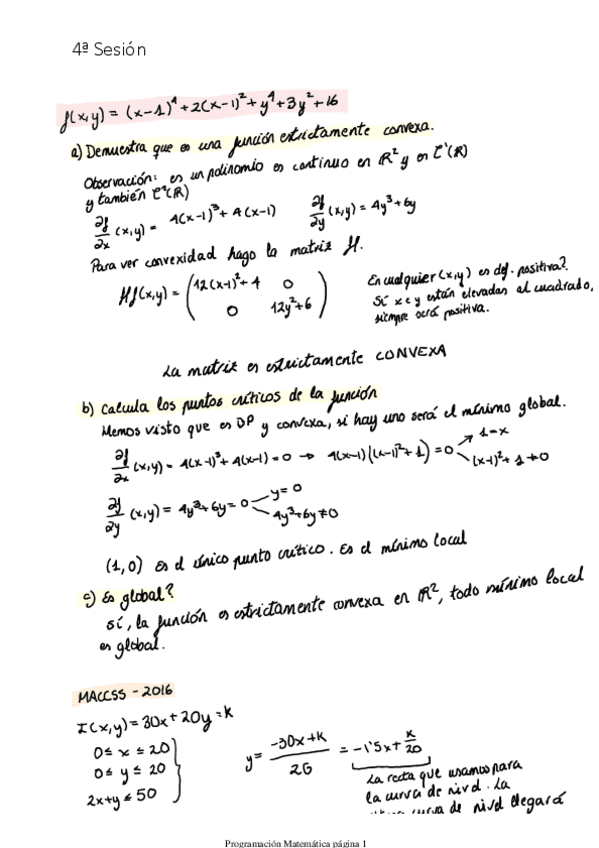 4ª Sesión
f(x,y) = (x-1)⁴ + 2(x-1)² + y⁴ + 3y² + 16
a) Demuestra que es una función estrictamente convexa.
Observación: es un polinomio es continuo en ℝ² y es C¹(ℝ)
y también C²(ℝ)
∂f/∂x (x,y) = 4(x-1)³ + 4(x-1)   ∂f/∂y (x,y) = 4y³ + 6y
Para ver convexidad hago la matriz H.
Hf(x,y) = (12(x-1)² + 4   0
0   12y² + 6)
En cualquier (x,y) es def. positiva?
Sí x e y están elevadas al cuadrado,
siempre será positiva.
La matriz es estrictamente CONVEXA
b) Calcula los puntos críticos de la función
Hemos visto que es DP y convexa, si hay uno será el mínimo global.
∂f/∂x (x,y) = 4(x-1)³ + 4(x-1) = 0 → 4(x-1)((x-1)² + 1) = 0
1-x
(x-1)² + 1 ≠ 0
∂f/∂y (x,y) = 4y³ + 6y = 0
y = 0
4y³ + 6y ≠ 0
(1,0) es el único punto crítico. Es el mínimo local
c) Es global?
Sí, la función es estrictamente convexa en ℝ², todo mínimo local
es global.
MACCSS - 2016
I(x,y) = 30x + 20y = K
0 ≤ x ≤ 20
0 ≤ y ≤ 20
2x+y ≤ 50
y = (-30x+K)/20 = -1'5x + K/20
La recta que usamos para
la curva de nivel. La
curva de nivel llegará
Programación Matemática página 1